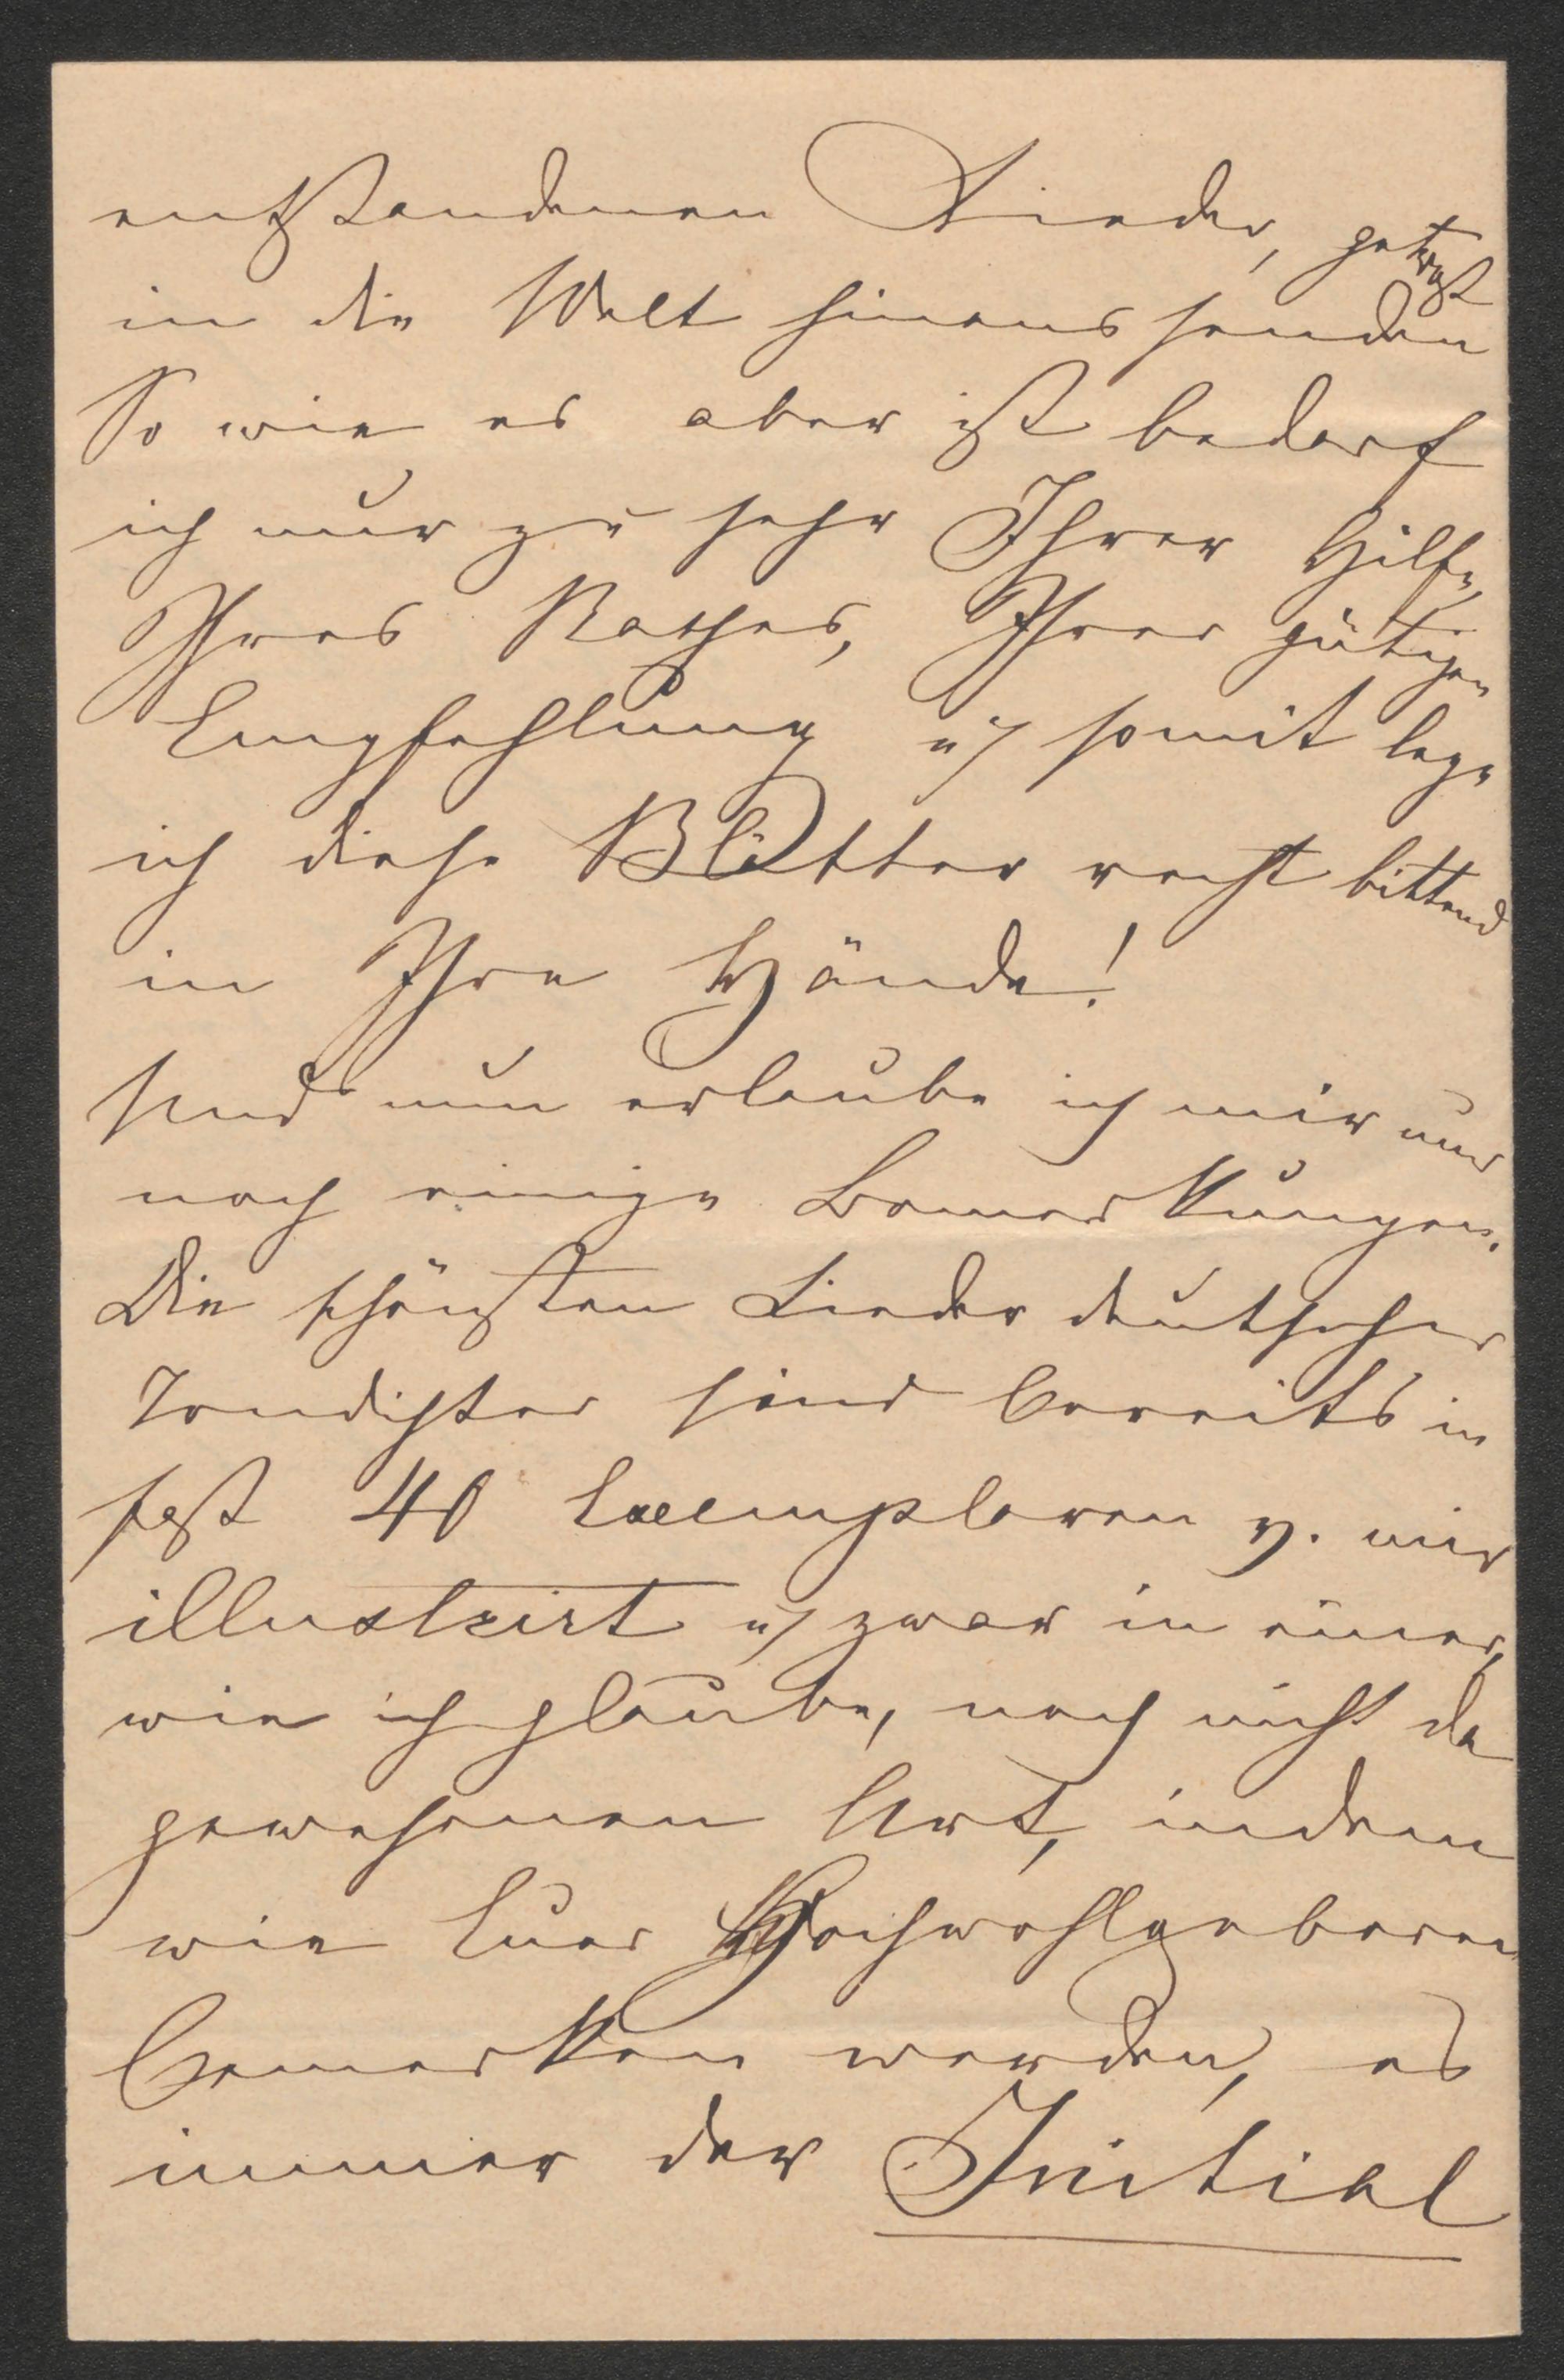 entstandenen Lieder, getrost
in die Welt hinaus senden
So wie es aber ist bedarf
ich nur zu sehr Ihrer Hilfe,
Ihres Rathes, Ihrer gütigen
Empfehlung u somit lege
ich diese Blätter recht bittend
in Ihre Hände!
Und nun erlaube ich mir nur
noch einige Bemerkungen.
Die schönsten Lieder deutscher
Tondichter sind bereits in
fast 40 Exemplaren v. mir
illustrirt u zwar in einer,
wie ich glaube, noch nicht da
gewesenen Art, indem
wie Euer Hochwohlgeboren
bemerken werden, es
immer der Initial